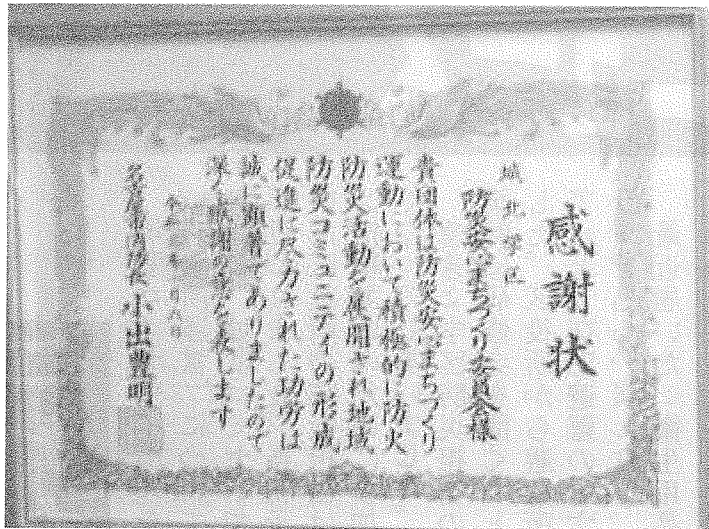 感謝状
城北学区
防災安心まちづくり委員会様
貴団体は防災安心まちづくり
運動において積極的に防火
防災活動を展開され地域
防災コミュニティの形成
促進に尽力された功労は
誠に顕著でありましたので
深く感謝の意を表します
名古屋市消防長 小出豊明